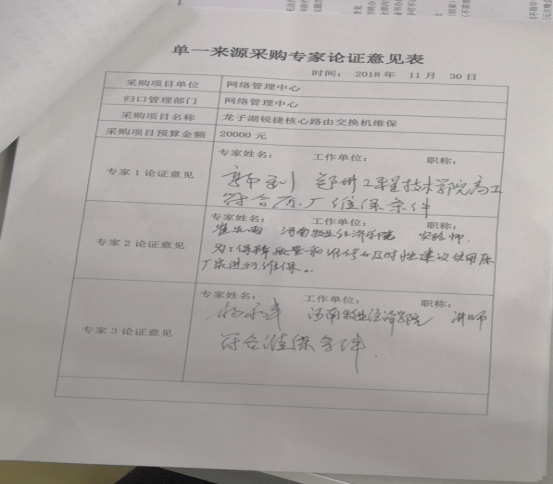 单一来源采购专家论证意见表
时间： 2018 年 11 月 30 日
采购项目单位 网络管理中心
归口管理部门 网络管理中心
采购项目名称 龙子湖锐捷核心路由交换机维保
采购项目预算金额 20000 元
专家姓名： 工作单位： 职称：
郑州工程技术学院 高工
专家 1 论证意见
符合原厂维保条件
专家姓名： 工作单位： 职称：
河南牧业经济学院 实验师
专家 2 论证意见
为了保障质量和维修的及时性建议使用原
厂家进行维保。
专家姓名： 工作单位： 职称：
河南牧业经济学院 讲师
专家 3 论证意见
符合维保条件.